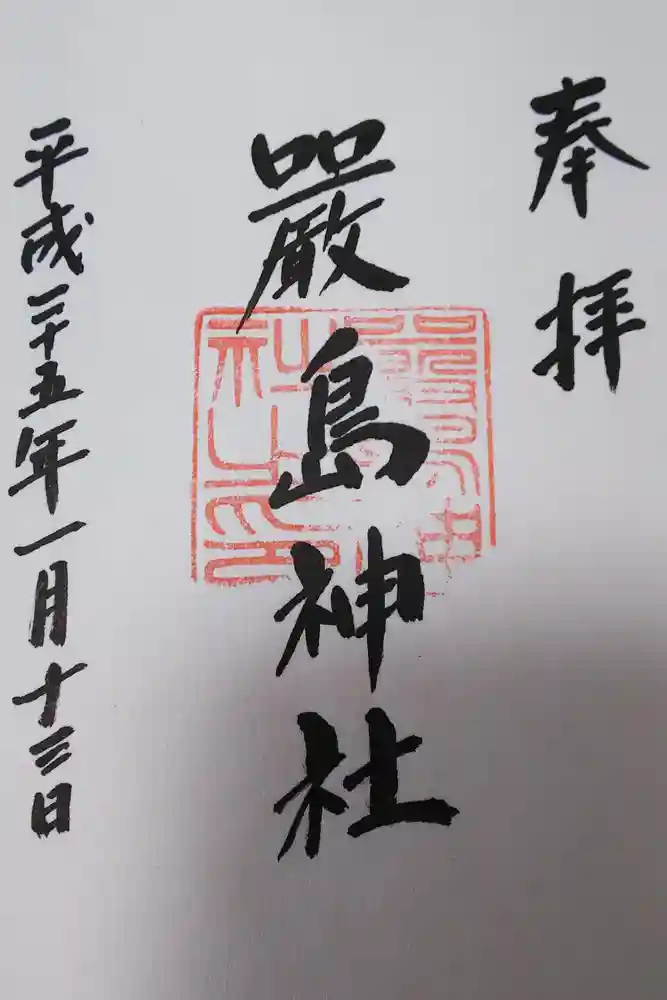 奉拝
嚴島神社
平成二十五年一月十三日